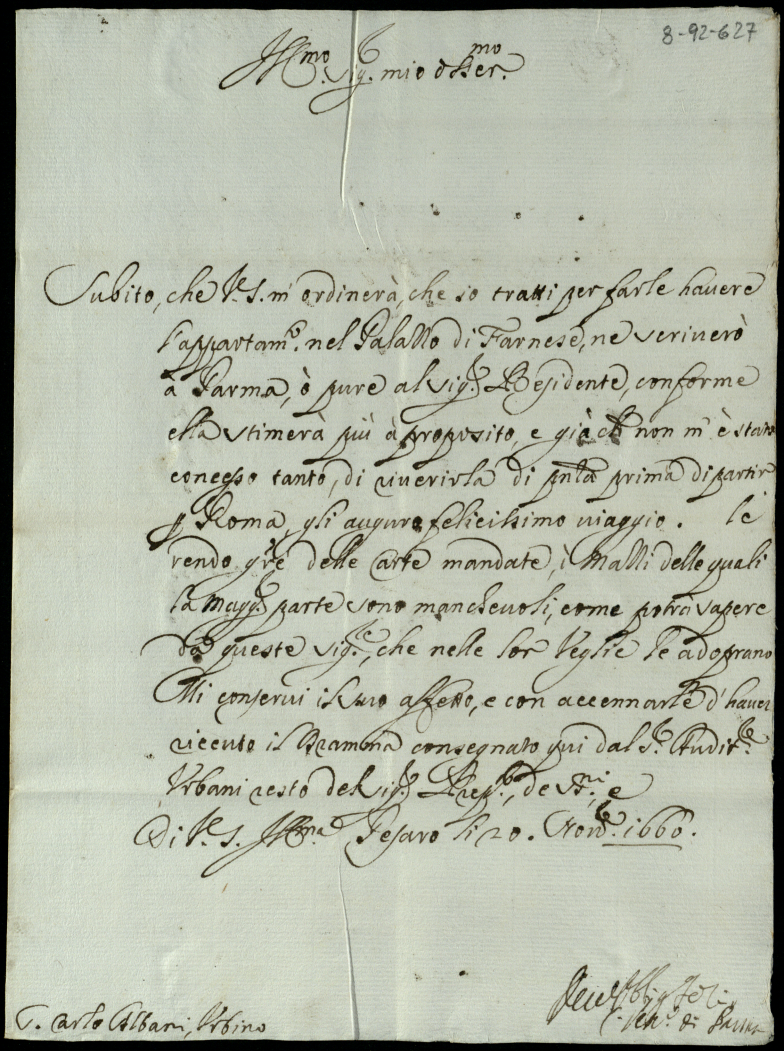 8-92-627
Ill.mo Sig.r mio oss.er.mo
Subito, che V.S. m'ordinerà, che io tratti per farle havere
l'appartam.o nel Palazzo di Farnese, ne scriverò
à Parma, ò pure al Sig.r Residente, conforme
ella stimerà più à proposito, e già che non m'è stato
concesso tanto, di riverirla di pñza prima di partir
p Roma, gli auguro felicissimo viaggio. Le
rendo grẽ delle carte mandate, i Mazzi delle quali
la magg.r parte sono manchevoli, come potrà sapere
da queste Sig.re, che nelle lor Veglie le adoprano
Mi conservi il suo affetto, e con accennarle d'haver
ricevuto il Dramma consegnato qui dal S.r Audit.re
Urbani resto del Sig.r
Di V.S. Ill.ma Pesaro li 20. Nov.re 1660.
S. Carlo Albani, Urbino